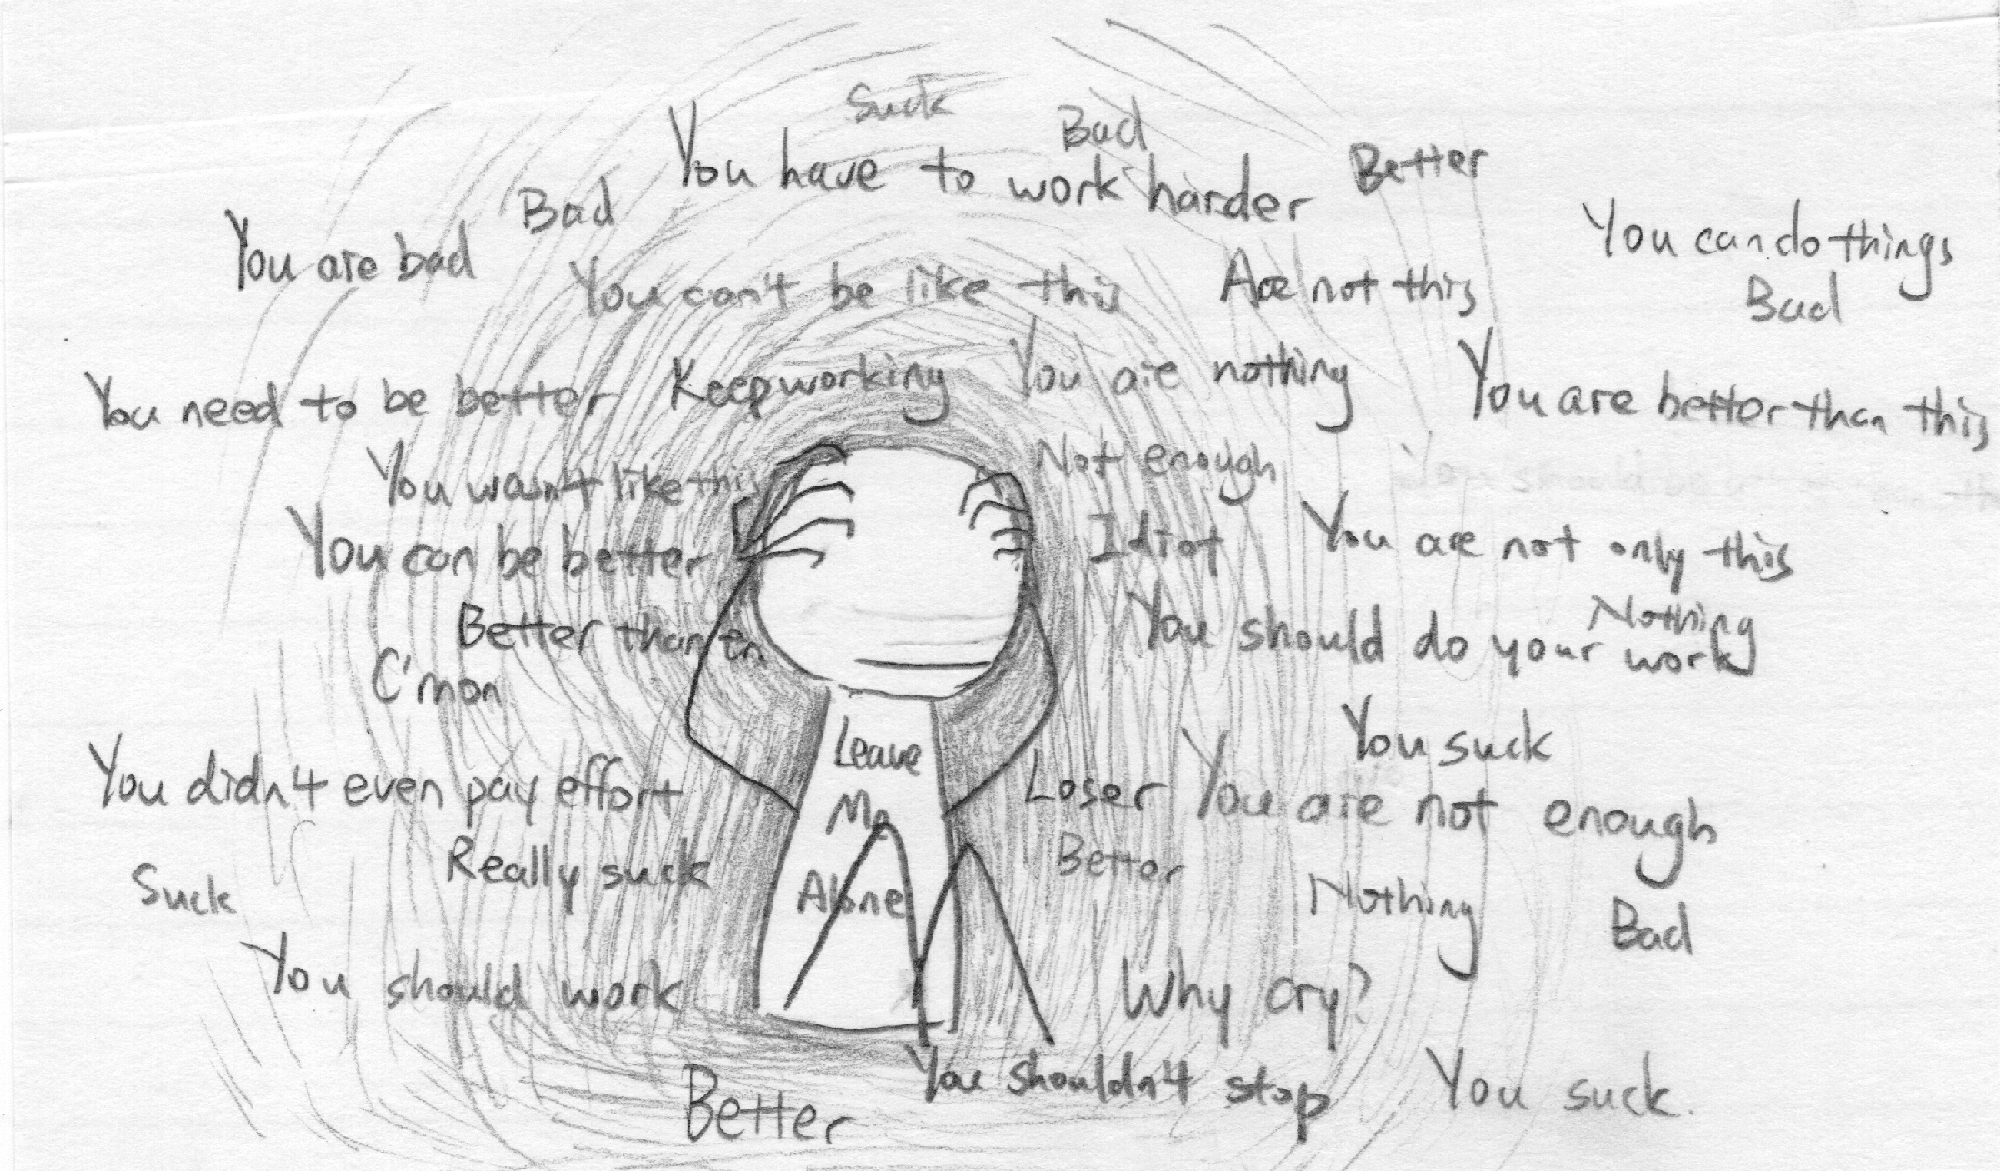 Suck
Bad
You have to work harder
Better
Bad
You are bad
You can do things
Bad
You can't be like this
Are not this
You need to be better
Keep working
You are nothing
You are better than this
You wasn't like this
Not enough
You can be better
Idiot
You are not only this
Better than
Nothing
You should do your work
C'mon
You suck
Leave
Me
Alone
You didn't even pay effort
Loser
You are not enough
Really suck
Better
Suck
Nothing
Bad
You should work
Why cry?
You shouldn't stop
You suck.
Better